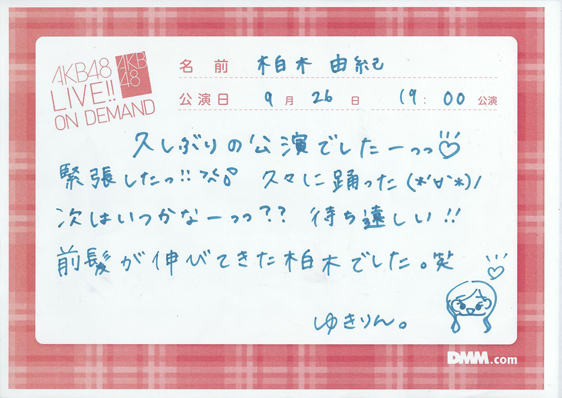 AKB48
LIVE!!
ON DEMAND
AKB
48
名 前 柏木 由紀
公演日 9 月 26 日 19:00 公演
久しぶりの公演でしたーっっ♡
緊張したっ!! 久々に踊った(*'∀'*)/
次はいつかなーっっ?? 待ち遠しい!!
前髪が伸びてきた柏木でした。笑
ゆきりん。
DMM.com